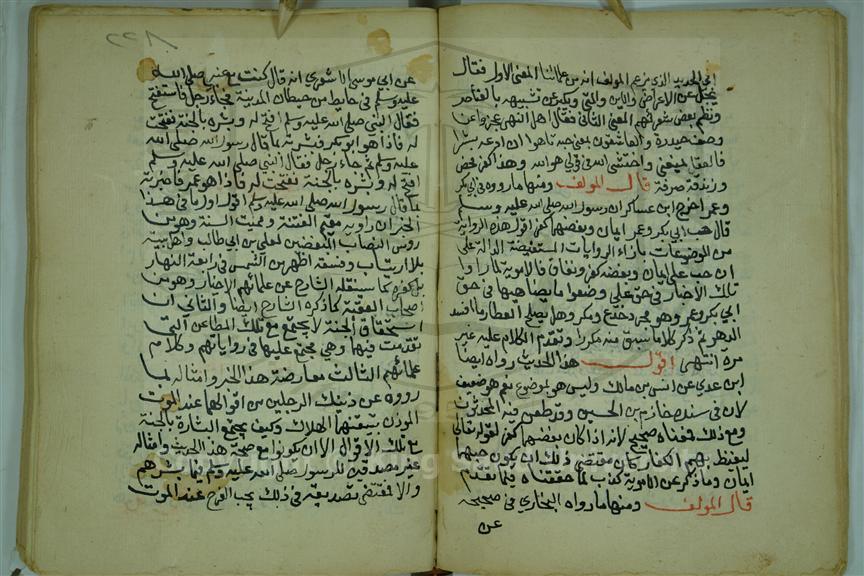 ابي الحديد الذي يزعم المؤلف انه من علمائنا المعنى الاول فقال
يجل عن الاعراض والاين والمتى ويكبر عن تشبيهه بالعناصر
ونظم بعض شعرائهم المعنى الثاني فقال اهل النهى عجزوا عن
وصف حيدرة والعاشقون بمعنى حبه تاهوا ان ادعه بشرا
فالعقل يمنعني واختشي الله في قولي هو الله وهذا كفر محض
وزندقة صرفة قال المولف ومنها ما رووه في ابي بكر
وعمر اخرج ابن عساكر ان رسول الله صلى الله عليه وسلم
قال حب ابي بكر وعمر ايمان وبغضهما كفر اقول هذه الرواية
من الموضوعات بازاء الروايات المستفيضة الدالة على
ان حب علي ايمان وبغضه كفر ونفاق فالاموية لما راوا
تلك الاخبار في حق علي وضعوا ما يضاهيها في حق
ابي بكر وعمر وهو مجرد خدع ومكر وهل يصلح العطار ما افسد
الدهر ثم ذكر كلاما سبق منه مكررا وتقدم الكلام عليه غير
مرة انتهى اقول هذا الحديث رواه ايضا
ابن عدي عن انس بن مالك وليس هو بموضوع نعم هو ضعيف
لان في سنده خازم بن الحسين وقد طعن فيه المحدثون
ومع ذلك فمعناه صحيح لانه اذا كان بغضهما كفر لقوله تعالى
ليغيظ بهم الكفار كان مقتضى ذلك ان يكون حبهما
ايمان وما ذكر عن الاموية كذب لما حققناه فيما تقدم
قال المولف ومنها ما رواه البخاري في صحيحه
عن
٨٢٢
عن ابي موسى الاشعري انه قال كنت مع النبي صلى الله
عليه وسلم في حايط من حيطان المدينة فجاء رجل فاستفتح
فقال النبي صلى الله عليه وسلم افتح له وبشره بالجنة ففتحت
له فاذا هو ابو بكر فبشرته بما قال رسول الله صلى الله
عليه وسلم ثم جاء رجل فقال النبي صلى الله عليه وسلم
افتح له وبشره بالجنة ففتحت له فاذا هو عمر فاخبرته
بما قال رسول الله صلى الله عليه وسلم اقول اولا في هذا
الخبر ان راويه مقيم الفتنة ومميت السنة وهو من
روس النصاب المبغضين لعلي بن ابي طالب واهل بيته
بلا ارتياب وفسقه اظهر من الشمس في رابعة النهار
بل كفره كما سينقله الشارع عن علمائهم الاخيار وهو من
اصحاب العقبة كما ذكره الشارع ايضا والثاني ان
استحقاق الجنة لا يجتمع مع تلك المطاعن التي
تقدمت فيها وهي مجمع عليها في رواياتهم وكلام
علمائهم الثالث معارضة هذا الخبر وامثاله لما
رووه عن ذينك الرجلين من اقوالهما عند الموت
الموذن بتيقنهما الهلاك وكيف يجتمع البشارة بالجنة
مع تلك الاقوال الا ان يكونوا مع صحة هذا الحديث وامثاله
غير مصدقين للرسول صلى الله عليه وسلم فيما بشرهم
والا فمقتضى تصديقه في ذلك يجب الفرح عند الموت